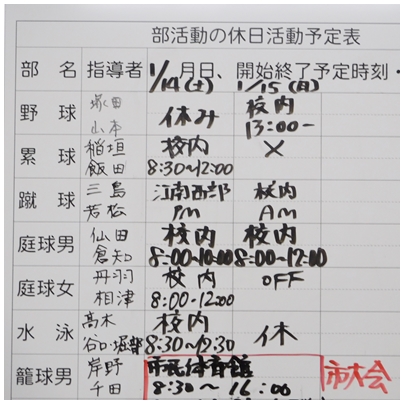 部活動の休日活動予定表
部 名 指導者 1/14(土) 月日、開始終了予定時刻・ 1/15(日)
野 球 塚田 山本 休み 校内 13:00-
累 球 稲垣 飯田 校内 8:30〜12:00 ×
蹴 球 三島 若松 江南西部 PM 校内 AM
庭球男 仙田 倉知 校内 8:00〜10:00 校内 8:00〜12:00
庭球女 丹羽 相津 校内 8:00-12:00 OFF
水 泳 高木 谷口・堀部 校内 8:30〜12:30 休
籠球男 岸野 千田 市民体育館 8:30〜16:00 市大会